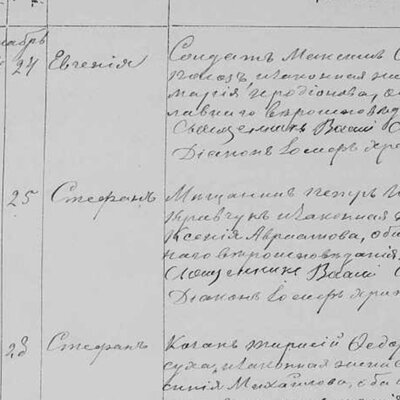 кабрь
24 Евгенія
Солдатъ Максимъ
законная же
Марія Иродіонова, о
лавнаго вѣроисповѣд
Священникъ Васил
Діаконъ Іосифъ
25 Стефанъ
Мѣщанинъ Петръ
Кравчукъ и законная
Ксенія Авраамова, оба
наго вѣроисповѣданія
Священникъ Васил
Діаконъ Іосифъ
28 Стефанъ
Казакъ Ѳедор
суха, и законная жена
Михайлова, оба